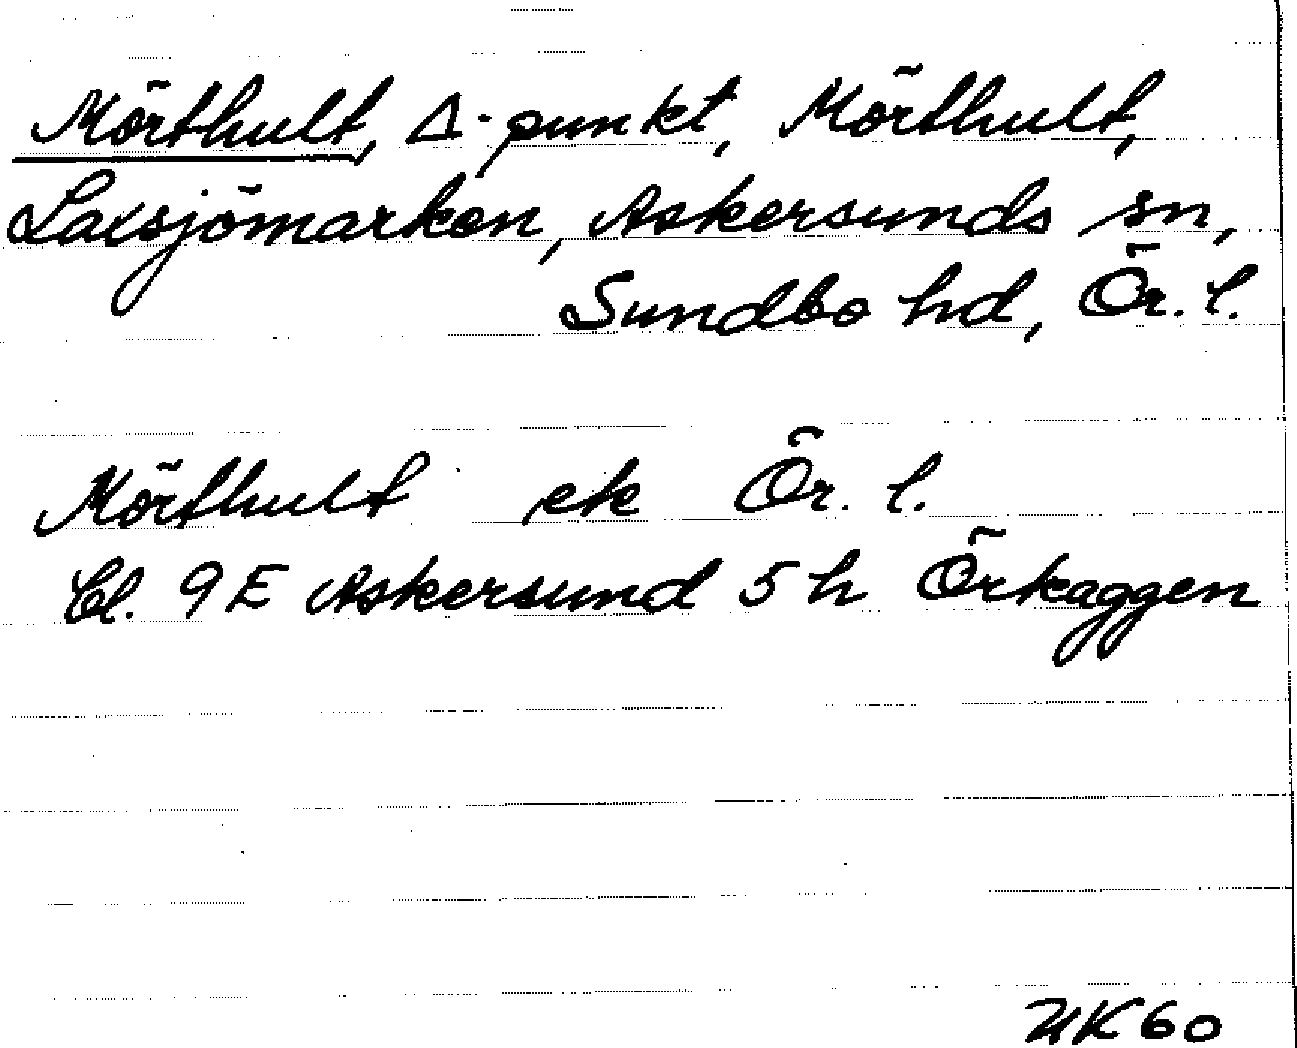 Mörthult, Δ-punkt, Mörthult,
Laxsjömarken, Askersunds sn,
Sundbo hd, Ör. l.
Mörthult ek Ör. l.
Bl. 9 E Askersund 5 h Örkaggen
UK 60